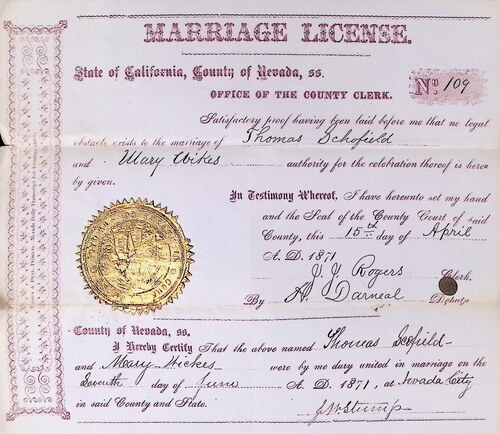 MARRIAGE LICENSE.
State of California, County of Nevada, ss.
OFFICE OF THE COUNTY CLERK.
No 109
Satisfactory proof having been laid before me that no legal
obstacle exists to the marriage of Thomas Schofield
and Mary Wikes authority for the celebration thereof is here
by given.
In Testimony Whereof, I have hereunto set my hand
and the Seal of the County Court of said
County, this 15th day of April
A. D. 1871
J. J. Rogers Clerk.
By H. Darneal Deputy
County of Nevada, ss.
I Hereby Certify That the above named Thomas Scofield
and Mary Wickes were by me duly united in marriage on the
Seventh day of June A. D. 1871, at Nevada City
in said County and State.
J. W. Stump